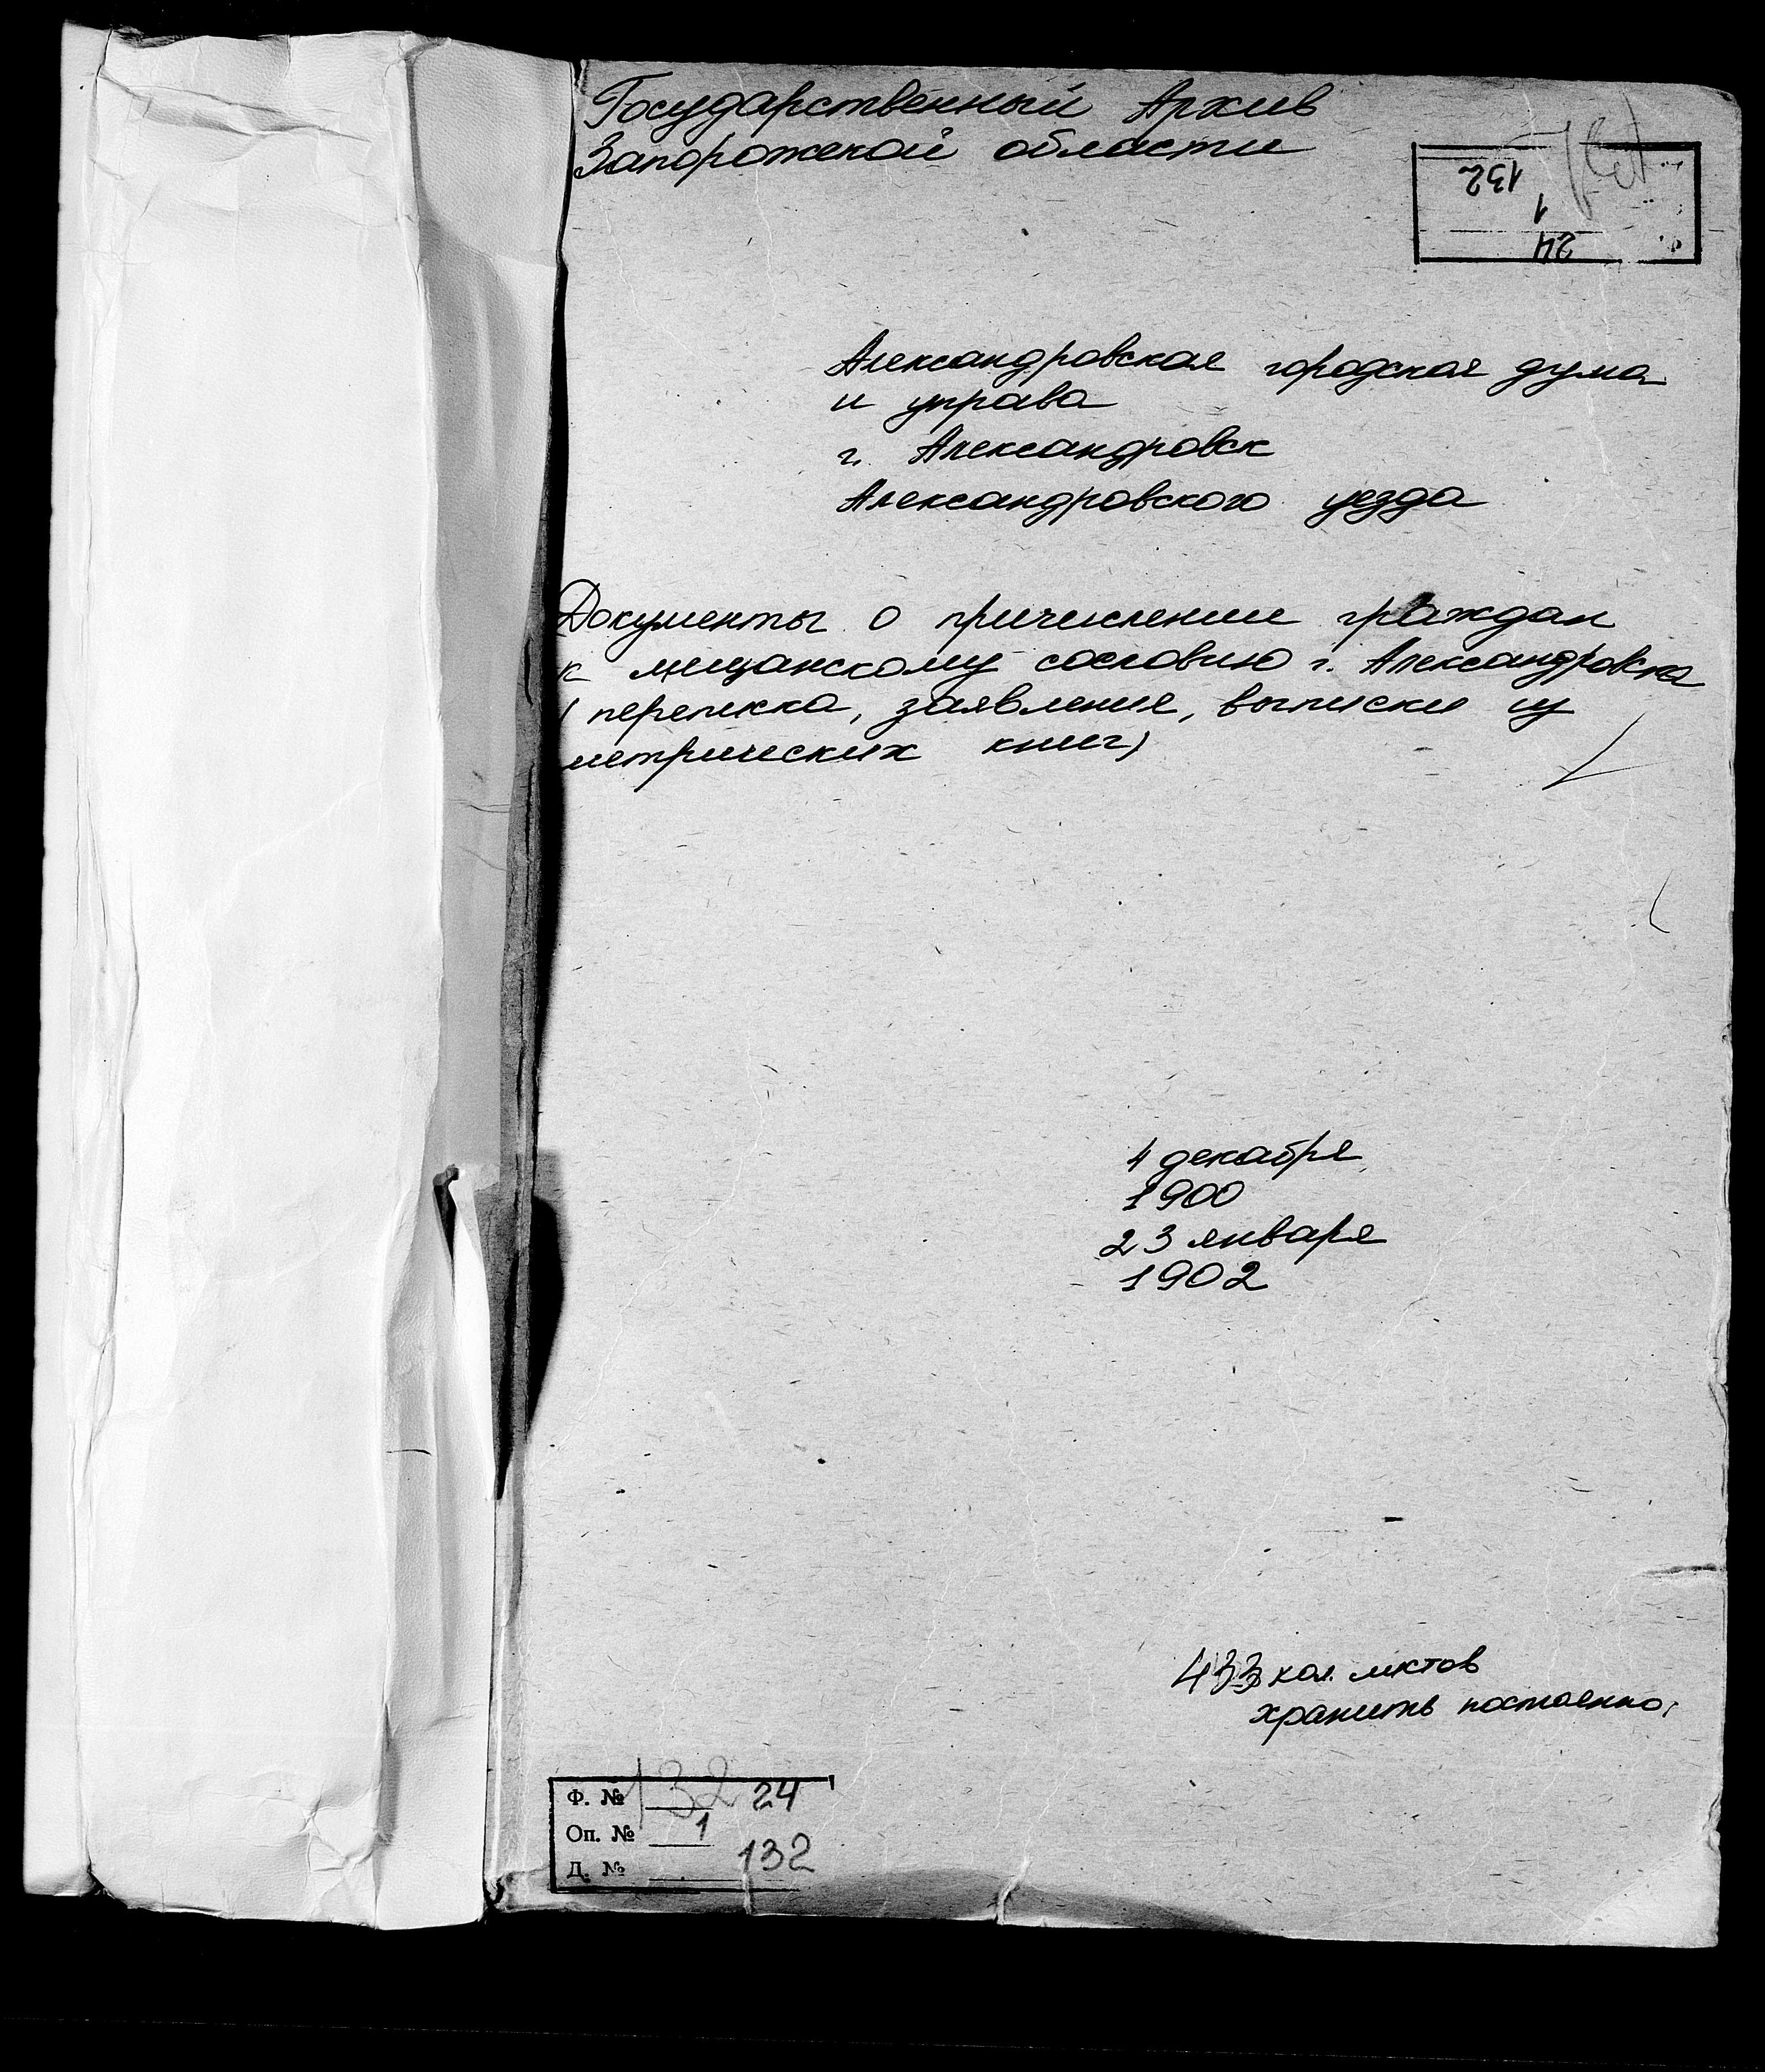 Государственный Архив
Запорожской области
132
1
24
Александровская городская дума
и управа
г. Александровск
Александровского уезда
Документы о причислении граждан
к мещанскому сословию г. Александровска
(переписка, заявления, выписки из
метрических книг)
4 декабря
1900
23 января
1902
433 кол. листов
хранить постоянно.
Ф. № 132 24
Оп. № 1
Д. № 132